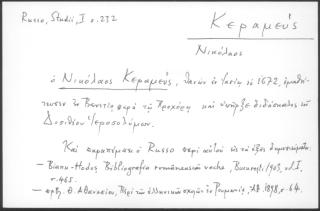 Russo, Studii, I σ. 232
Κεραμεύς
Νικόλαος
ὁ Νικόλαος Κεραμεύς, θανὼν ἐν Ἰασίῳ τῷ 1672, ἐμαθή-
τευσεν ἐν Βενετίᾳ παρὰ τῷ καὶ ὑπῆρξε διδάσκαλος τοῦ
Δοσιθέου Ἱεροσολύμων.
Καὶ παραπέμπει ὁ Russo περὶ αὐτοῦ εἰς τὰ ἑξῆς δημοσιεύματα:
– Bianu-Hodoș Bibliografia românească veche, București 1903, vol. I,
σ. 465.
– Θ. Ἀθανασίου, Περὶ τῶν ἑλληνικῶν σχολῶν ἐν Ῥουμανίᾳ, Ἀθ. 1898, σ. 64.